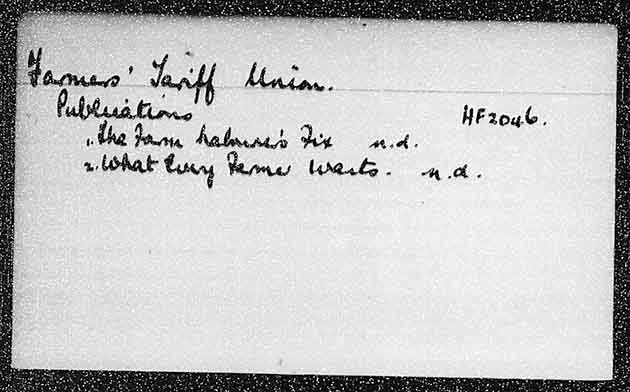 Farmers' Tariff Union.
Publications HF2046.
1. The Farm Labourer's Fix n.d.
2. What Every Farmer Wants. n.d.